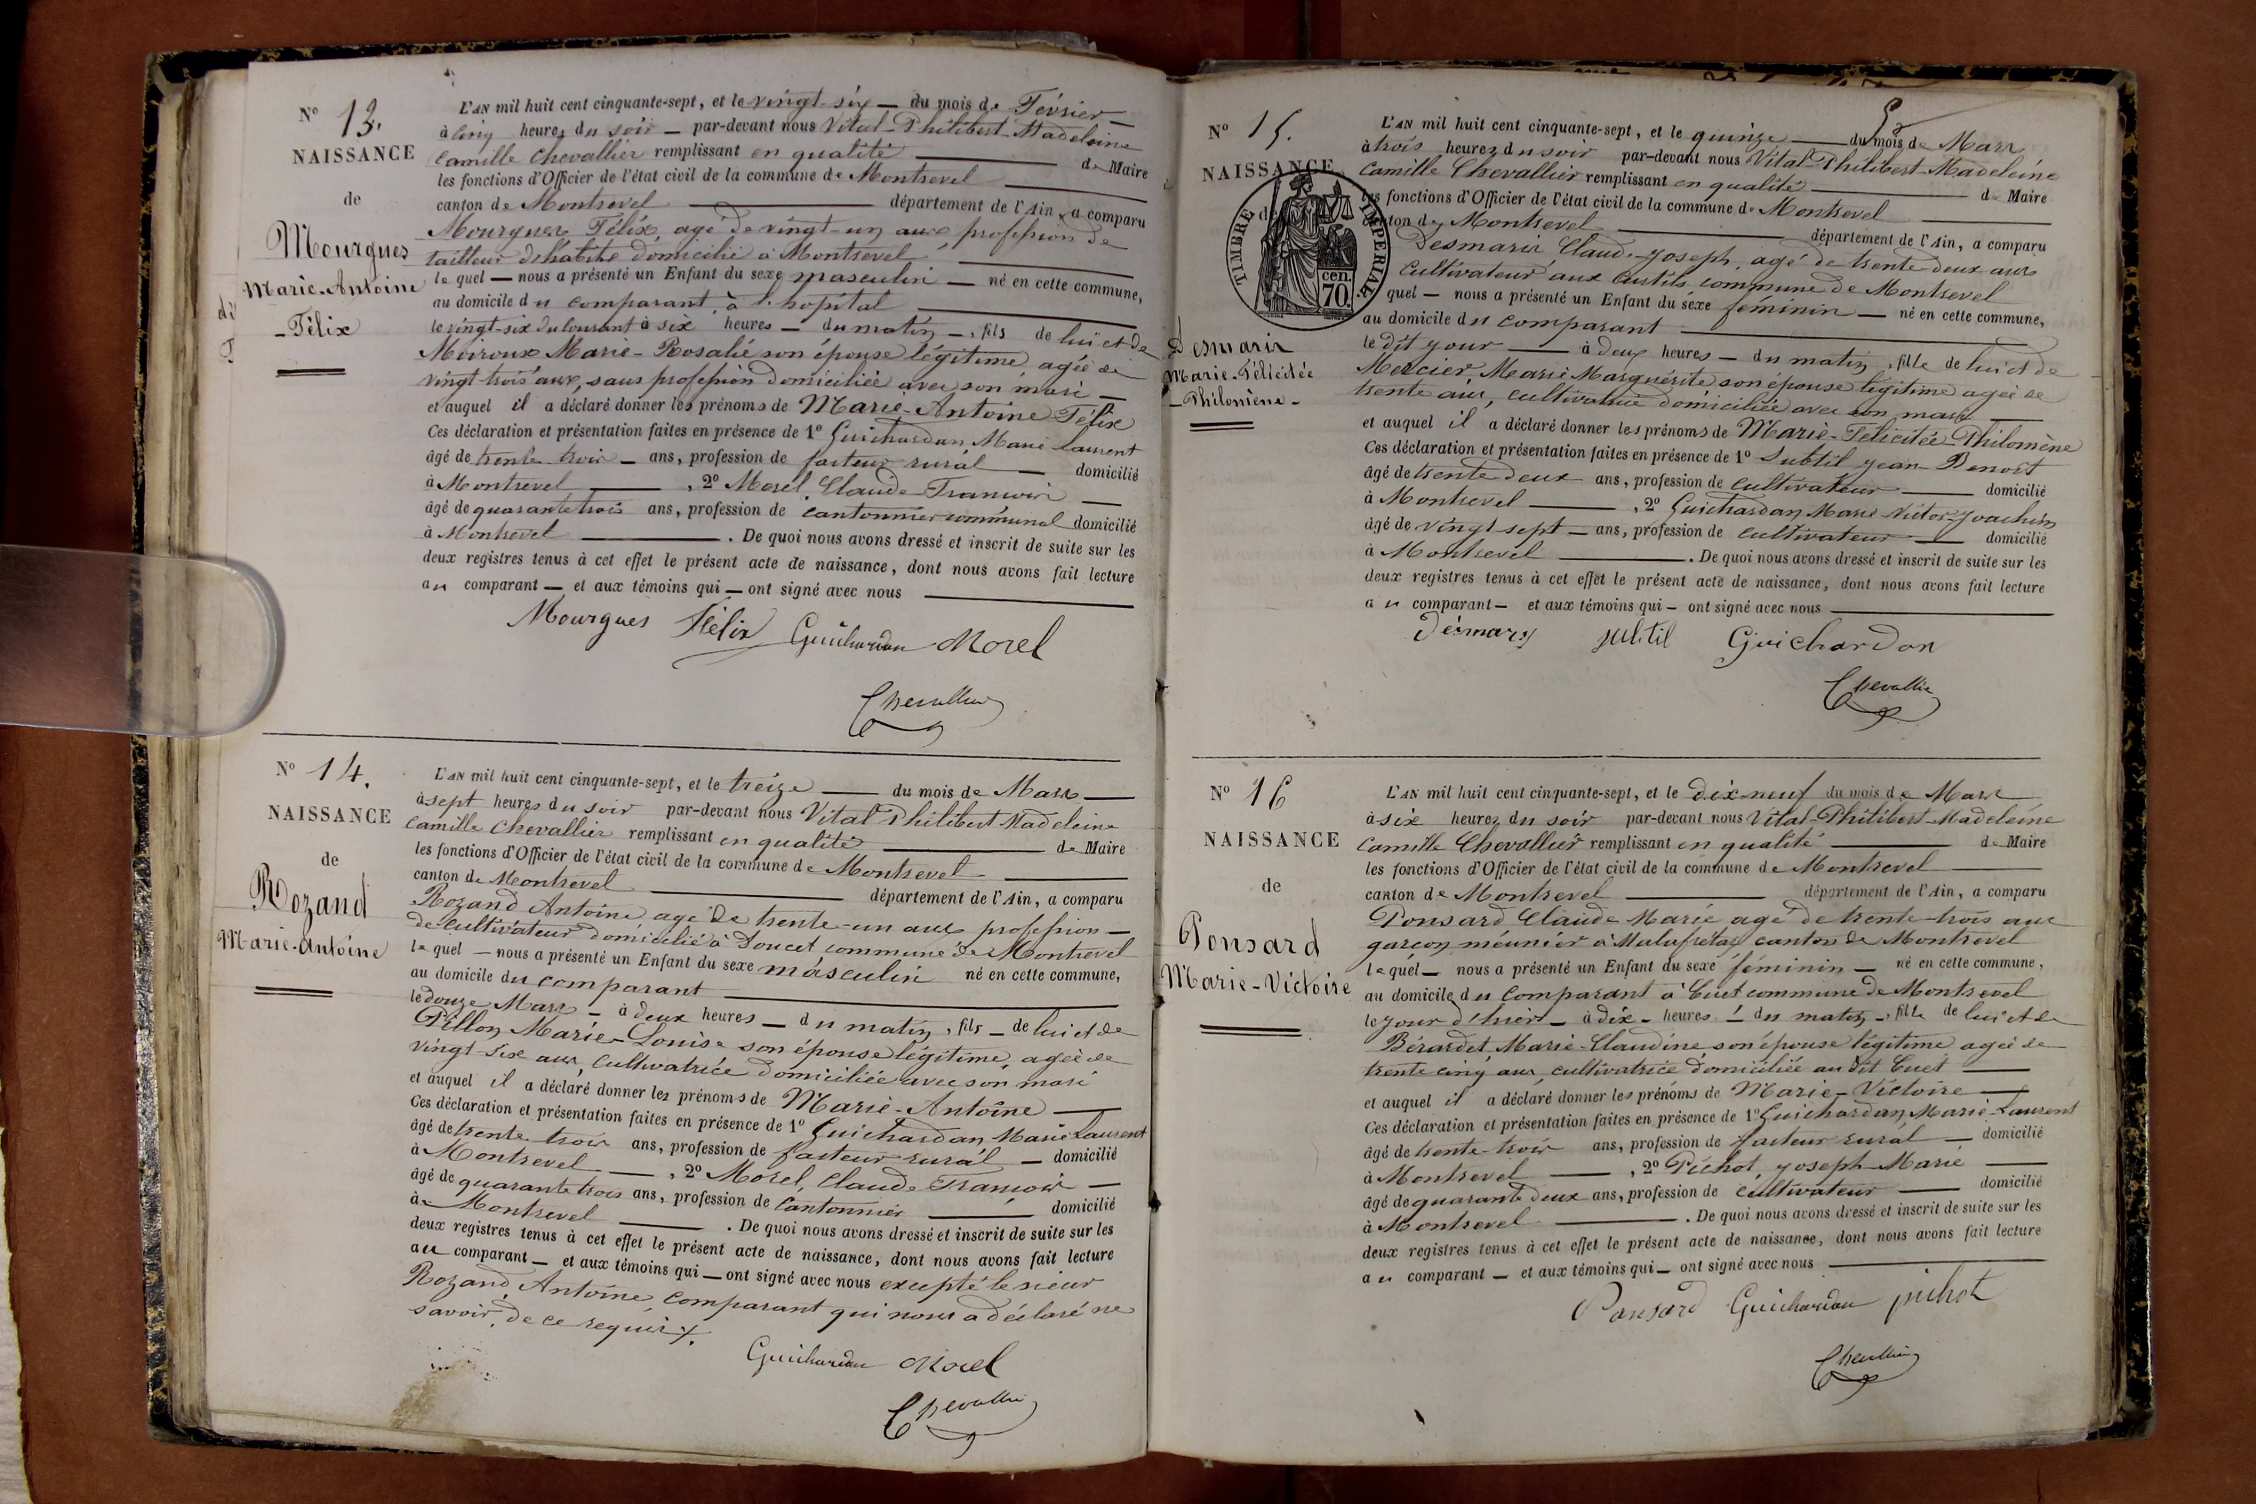 N° 13.
NAISSANCE
de
Mourgues
Marie-Antoine
-Félix
L'AN mil huit cent cinquante-sept, et le vingt-six — du mois de Février —
à cinq heures du soir — par-devant nous Vital-Philibert-Madeleine
Camille Chevallier remplissant en qualité — de Maire
les fonctions d'Officier de l'état civil de la commune de Montrevel —
canton de Montrevel — département de l'Ain, a comparu
Mourgues Félix, agé de vingt-un ans profession de
tailleur d'habits domicilié à Montrevel —
le quel — nous a présenté un Enfant du sexe masculin — né en cette commune,
au domicile du comparant, à l'hopital —
le vingt-six du courant à six heures — du matin —, fils de lui et de
Moiroux Marie-Rosalie son épouse légitime, agée de
vingt trois ans, sans profession domiciliée avec son mari —
et auquel il a déclaré donner les prénoms de Marie-Antoine Félix
Ces déclaration et présentation faites en présence de 1° Guichardan Marie Laurent
âgé de trente trois — ans, profession de facteur rural — domicilié
à Montrevel —, 2° Morel, Claude-Francois —
âgé de quarante trois ans, profession de cantonnier communal domicilié
à Montrevel — . De quoi nous avons dressé et inscrit de suite sur les
deux registres tenus à cet effet le présent acte de naissance, dont nous avons fait lecture
au comparant — et aux témoins qui — ont signé avec nous —
Mourgues Félix Guichardan Morel
Chevallier
N° 14.
NAISSANCE
de
Rozand
Marie-Antoine
L'AN mil huit cent cinquante-sept, et le treize — du mois de Mars —
à sept heures du soir par-devant nous Vital Philibert Madeleine
Camille Chevallier remplissant en qualité — de Maire
les fonctions d'Officier de l'état civil de la commune de Montrevel —
canton de Montrevel — département de l'Ain, a comparu
Rozand Antoine agé de trente-un ans profession —
de cultivateur domicilié à Doucet commune de Montrevel
le quel — nous a présenté un Enfant du sexe masculin né en cette commune,
au domicile du comparant —
le douze Mars — à deux heures — du matin, fils — de lui et de
Pillon, Marie-Louise son épouse légitime, agée de
vingt-six ans, cultivatrice domiciliée avec son mari
et auquel il a déclaré donner les prénoms de Marie-Antoine —
Ces déclaration et présentation faites en présence de 1° Guichardan Marie Laurent
âgé de trente trois ans, profession de facteur rural — domicilié
à Montrevel —, 2° Morel, Claude Francois —
âgé de quarante trois ans, profession de Cantonnier — domicilié
à Montrevel — . De quoi nous avons dressé et inscrit de suite sur les
deux registres tenus à cet effet le présent acte de naissance, dont nous avons fait lecture
au comparant — et aux témoins qui — ont signé avec nous excepté le sieur
Rozand, Antoine, comparant qui nous a déclaré ne
savoir, de ce requis.
Guichardan Morel
Chevallier
N° 15.
NAISSANCE
de
TIMBRE IMPERIAL
70 cen.
Desmaris
Marie-Félicitée
-Philomène-
L'AN mil huit cent cinquante-sept, et le quinze — du mois de Mars
à trois heures du soir par-devant nous Vital-Philibert-Madeleine
Camille Chevallier remplissant en qualité — de Maire
les fonctions d'Officier de l'état civil de la commune de Montrevel —
canton de Montrevel — département de l'Ain, a comparu
Desmaris Claude-Joseph, agé de trente deux ans
cultivateur aux commune de Montrevel
quel — nous a présenté un Enfant du sexe féminin — né en cette commune,
au domicile du comparant —
le dit jour — à deux heures — du matin, fille de lui et de
Mercier, Marie Marguérite son épouse légitime agée de
trente ans, cultivatrice domiciliée avec son mari —
et auquel il a déclaré donner les prénoms de Marie-Félicitée-Philomène
Ces déclaration et présentation faites en présence de 1° Subtil Jean-Benoit
âgé de trente deux ans, profession de cultivateur — domicilié
à Montrevel —, 2° Guichardan Marie Victor-Joachim
âgé de vingt sept — ans, profession de cultivateur — domicilié
à Montrevel — . De quoi nous avons dressé et inscrit de suite sur les
deux registres tenus à cet effet le présent acte de naissance, dont nous avons fait lecture
au comparant — et aux témoins qui — ont signé avec nous —
Desmarys subtil Guichardon
Chevallier
N° 16
NAISSANCE
de
Ponsard
Marie-Victoire
L'AN mil huit cent cinquante-sept, et le dix-neuf du mois de Mars
à six heures du soir par-devant nous Vital-Philibert-Madeleine
Camille Chevallier remplissant en qualité — de Maire
les fonctions d'Officier de l'état civil de la commune de Montrevel —
canton de Montrevel — département de l'Ain, a comparu
Ponsard Claude Marie agé de trente-trois ans
garçon meunier à Malafretaz canton de Montrevel
le quel — nous a présenté un Enfant du sexe féminin — né en cette commune,
au domicile du comparant à Cuet commune de Montrevel
le jour d'hier — à dix — heures — du matin —, fille de lui et de
Bérardet, Marie-Claudine son épouse légitime agée de
trente cinq ans, cultivatrice domiciliée au dit Cuet —
et auquel il a déclaré donner les prénoms de Marie-Victoire —
Ces déclaration et présentation faites en présence de 1° Guichardan, Marie-Laurent
âgé de trente-trois ans, profession de facteur rural — domicilié
à Montrevel —, 2° Pichot, Joseph-Marie —
âgé de quarante deux ans, profession de cultivateur — domicilié
à Montrevel — . De quoi nous avons dressé et inscrit de suite sur les
deux registres tenus à cet effet le présent acte de naissance, dont nous avons fait lecture
au comparant — et aux témoins qui — ont signé avec nous —
Ponsard Guichardan pichot
Chevallier